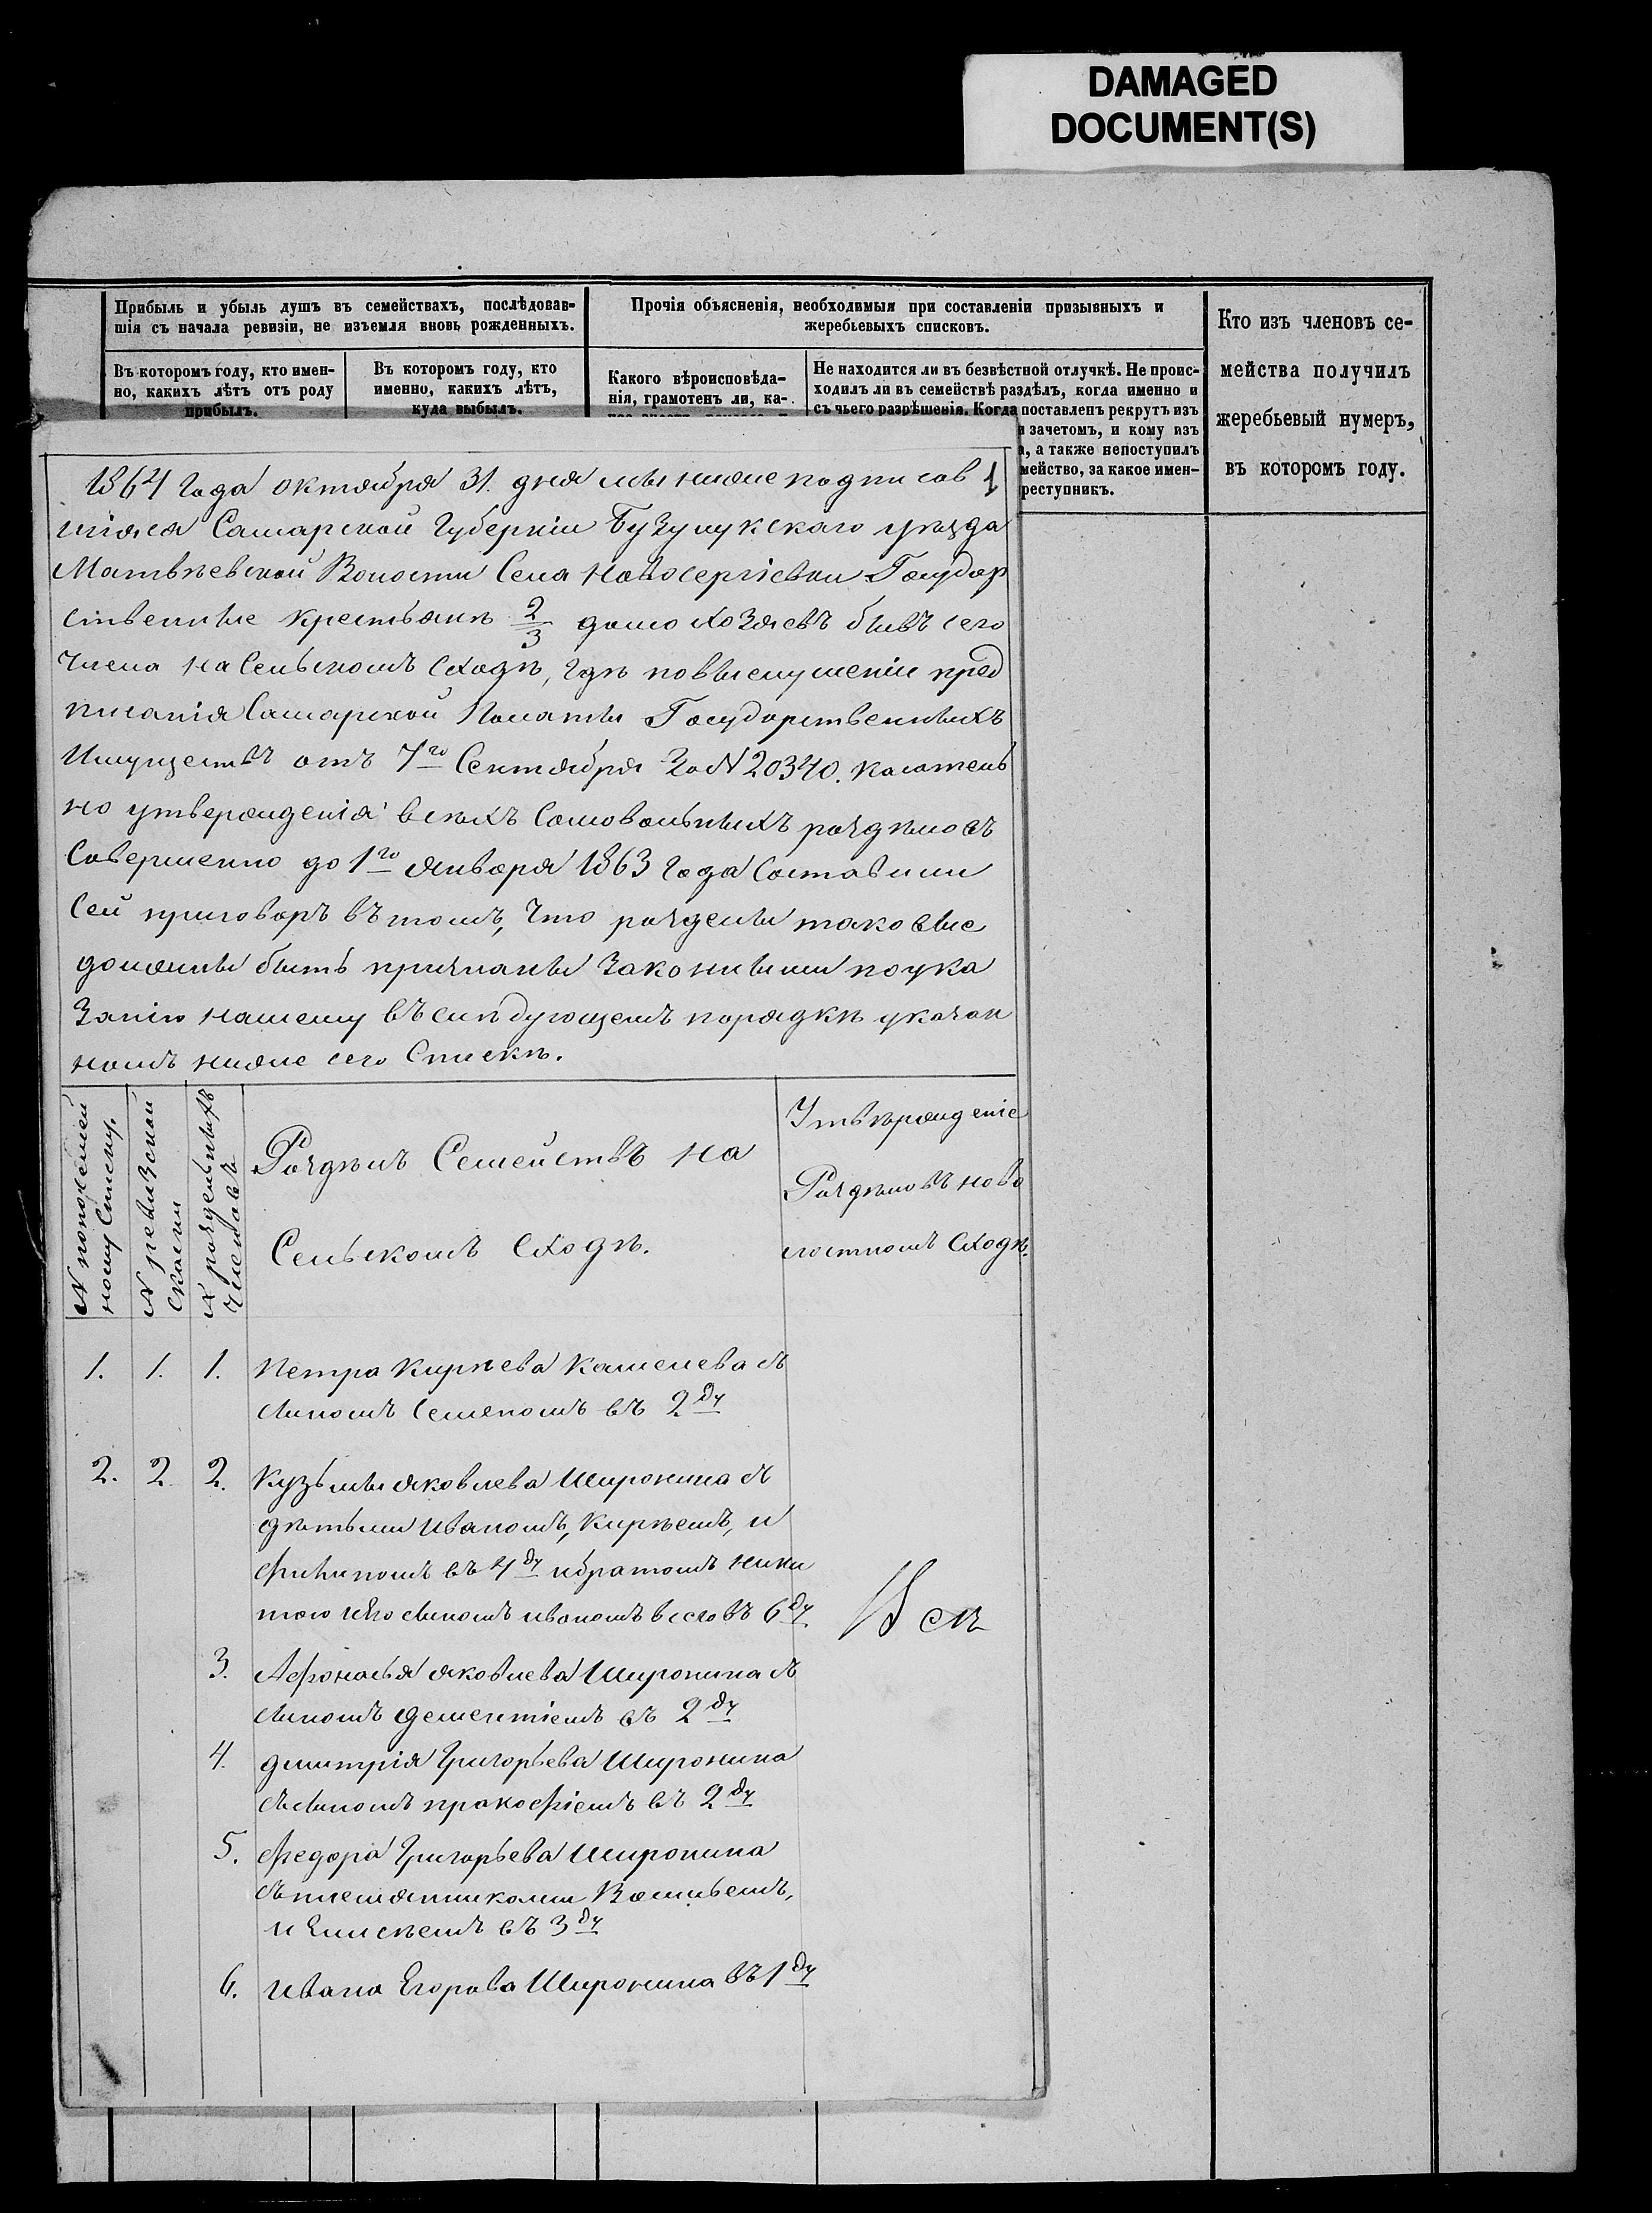 DAMAGED
DOCUMENT(S)
Прибыль и убыль душъ въ семействахъ, послѣдовав-
шія съ начала ревизіи, не изъемля вновь рожденныхъ.
Въ которомъ году, кто имен-
но, какихъ лѣтъ отъ роду
прибылъ.
Въ которомъ году, кто
именно, какихъ лѣтъ,
куда выбылъ.
Прочія объясненія, необходимыя при составленіи призывныхъ и
жеребьевыхъ списковъ.
Какого вѣроисповѣда-
нія, грамотенъ ли, ка-
Не находится ли въ безвѣстной отлучкѣ. Не проис-
ходилъ ли въ семействѣ раздѣлъ, когда именно и
съ чьего разрѣшенія. Когда поставленъ рекрутъ изъ
зачетомъ, и кому изъ
а, а также непоступилъ
мейство, за какое имен-
реступникъ.
Кто изъ членовъ се-
мейства получилъ
жеребьевый нумеръ,
въ которомъ году.
1
1864 Года октября 31. дня мы нижеподписав
шіяся Самарской Губерніи Бузулукскаго уѣзда
Матвѣевской Волости Села Новосергіевки Государ
ственные крестьянѣ 2/3 домохозяевъ бывъ сего
числа на Сельскомъ сходѣ, гдѣ по выслушеніи пред
писанія Самарской Палаты Государственныхъ
Имуществъ отъ 7го Сентября За № 20340. касатель
но утвержденія всѣхъ Самовольныхъ раздѣловъ
Совершенно до 1го января 1863 Года Составили
Сей приговоръ въ томъ, Что разделы таковые
должны быть признаны Законными по ука
Занію нашему въ слѣдующемъ порядкѣ указан
номъ ниже сего Спискѣ.
№ по посемей
ному Списку.
№ ревизской
Сказки
№ раздельныхъ
Членовъ
Раздѣлъ Семействъ на
Сельскомъ Сходѣ.
Утвѣржденіе
Раздѣловъ на во
лостномъ Сходѣ.
1. 1. 1. Петра Кирѣева Кашелева съ
сыномъ Семеномъ въ 2 ду
2. 2 2. Кузьмы яковлева Широнина съ
дѣтьми Иваномъ, Кирѣемъ, и
Филипомъ въ 4 ду и братомъ ники
тою и его сыномъ иваномъ всего въ 6 ду
3. Афонасья яковлева Широнина съ
сыномъ дементіемъ въ 2 ду
4. дмитрія Григорьева Широнина
съ сыномъ прокофіемъ въ 2 ду
5. Федора Григорьева Широнина
съ племянниками Васильемъ,
и Елисѣемъ въ 3 ду
6. Ивана Егорова Широнина въ 1 ду